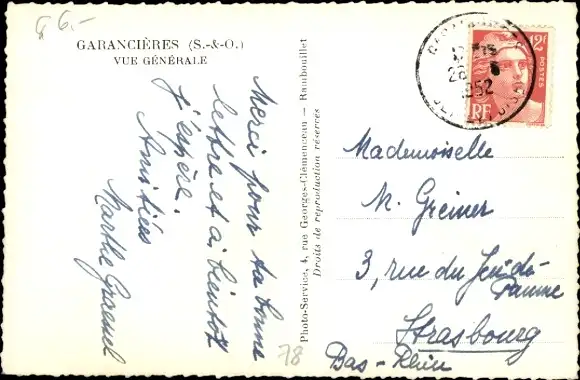 G 6.-
GARANCIÈRES (S.-&-O.)
VUE GÉNÉRALE
Merci pour ta bonne
lettre et à bientôt
j'espère.
Amitiés
Marthe
Photo-Service, 4, rue Georges-Clémenceau — Rambouillet
Droits de reproduction réservés
1952
12F
POSTES
RF
Mademoiselle
M. Greiner
3, rue du Jeu-de-
Paume
Strasbourg
Bas-Rhin
78